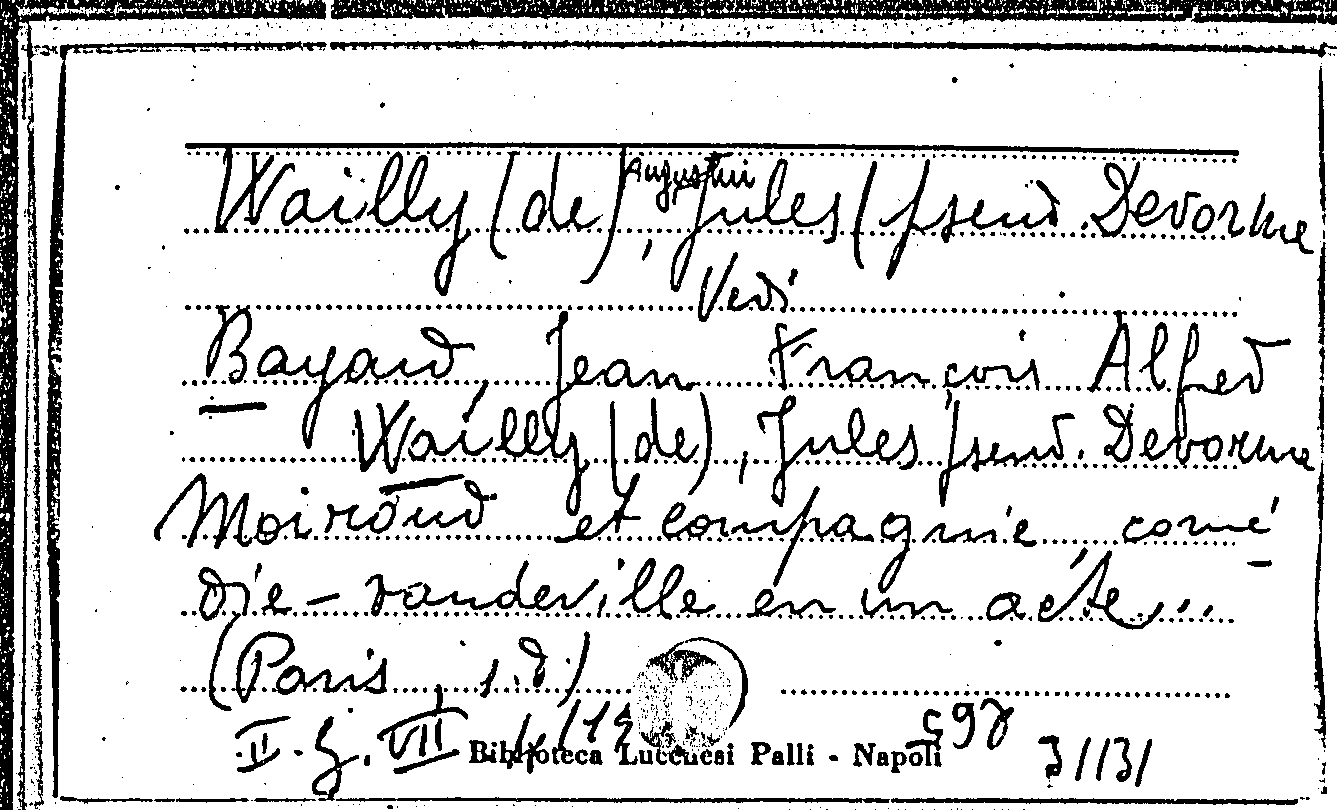 Wailly (de), Augustin Jules (pseud. Devorme
Vedi
Bayard, Jean François Alfred
Wailly (de), Jules pseud. Devorme
Moiroud et compagnie comé
die-vaudeville en un acte...
(Paris, s.d.)
II. Z. VII
Biblioteca Lucchesi Palli - Napoli
31131